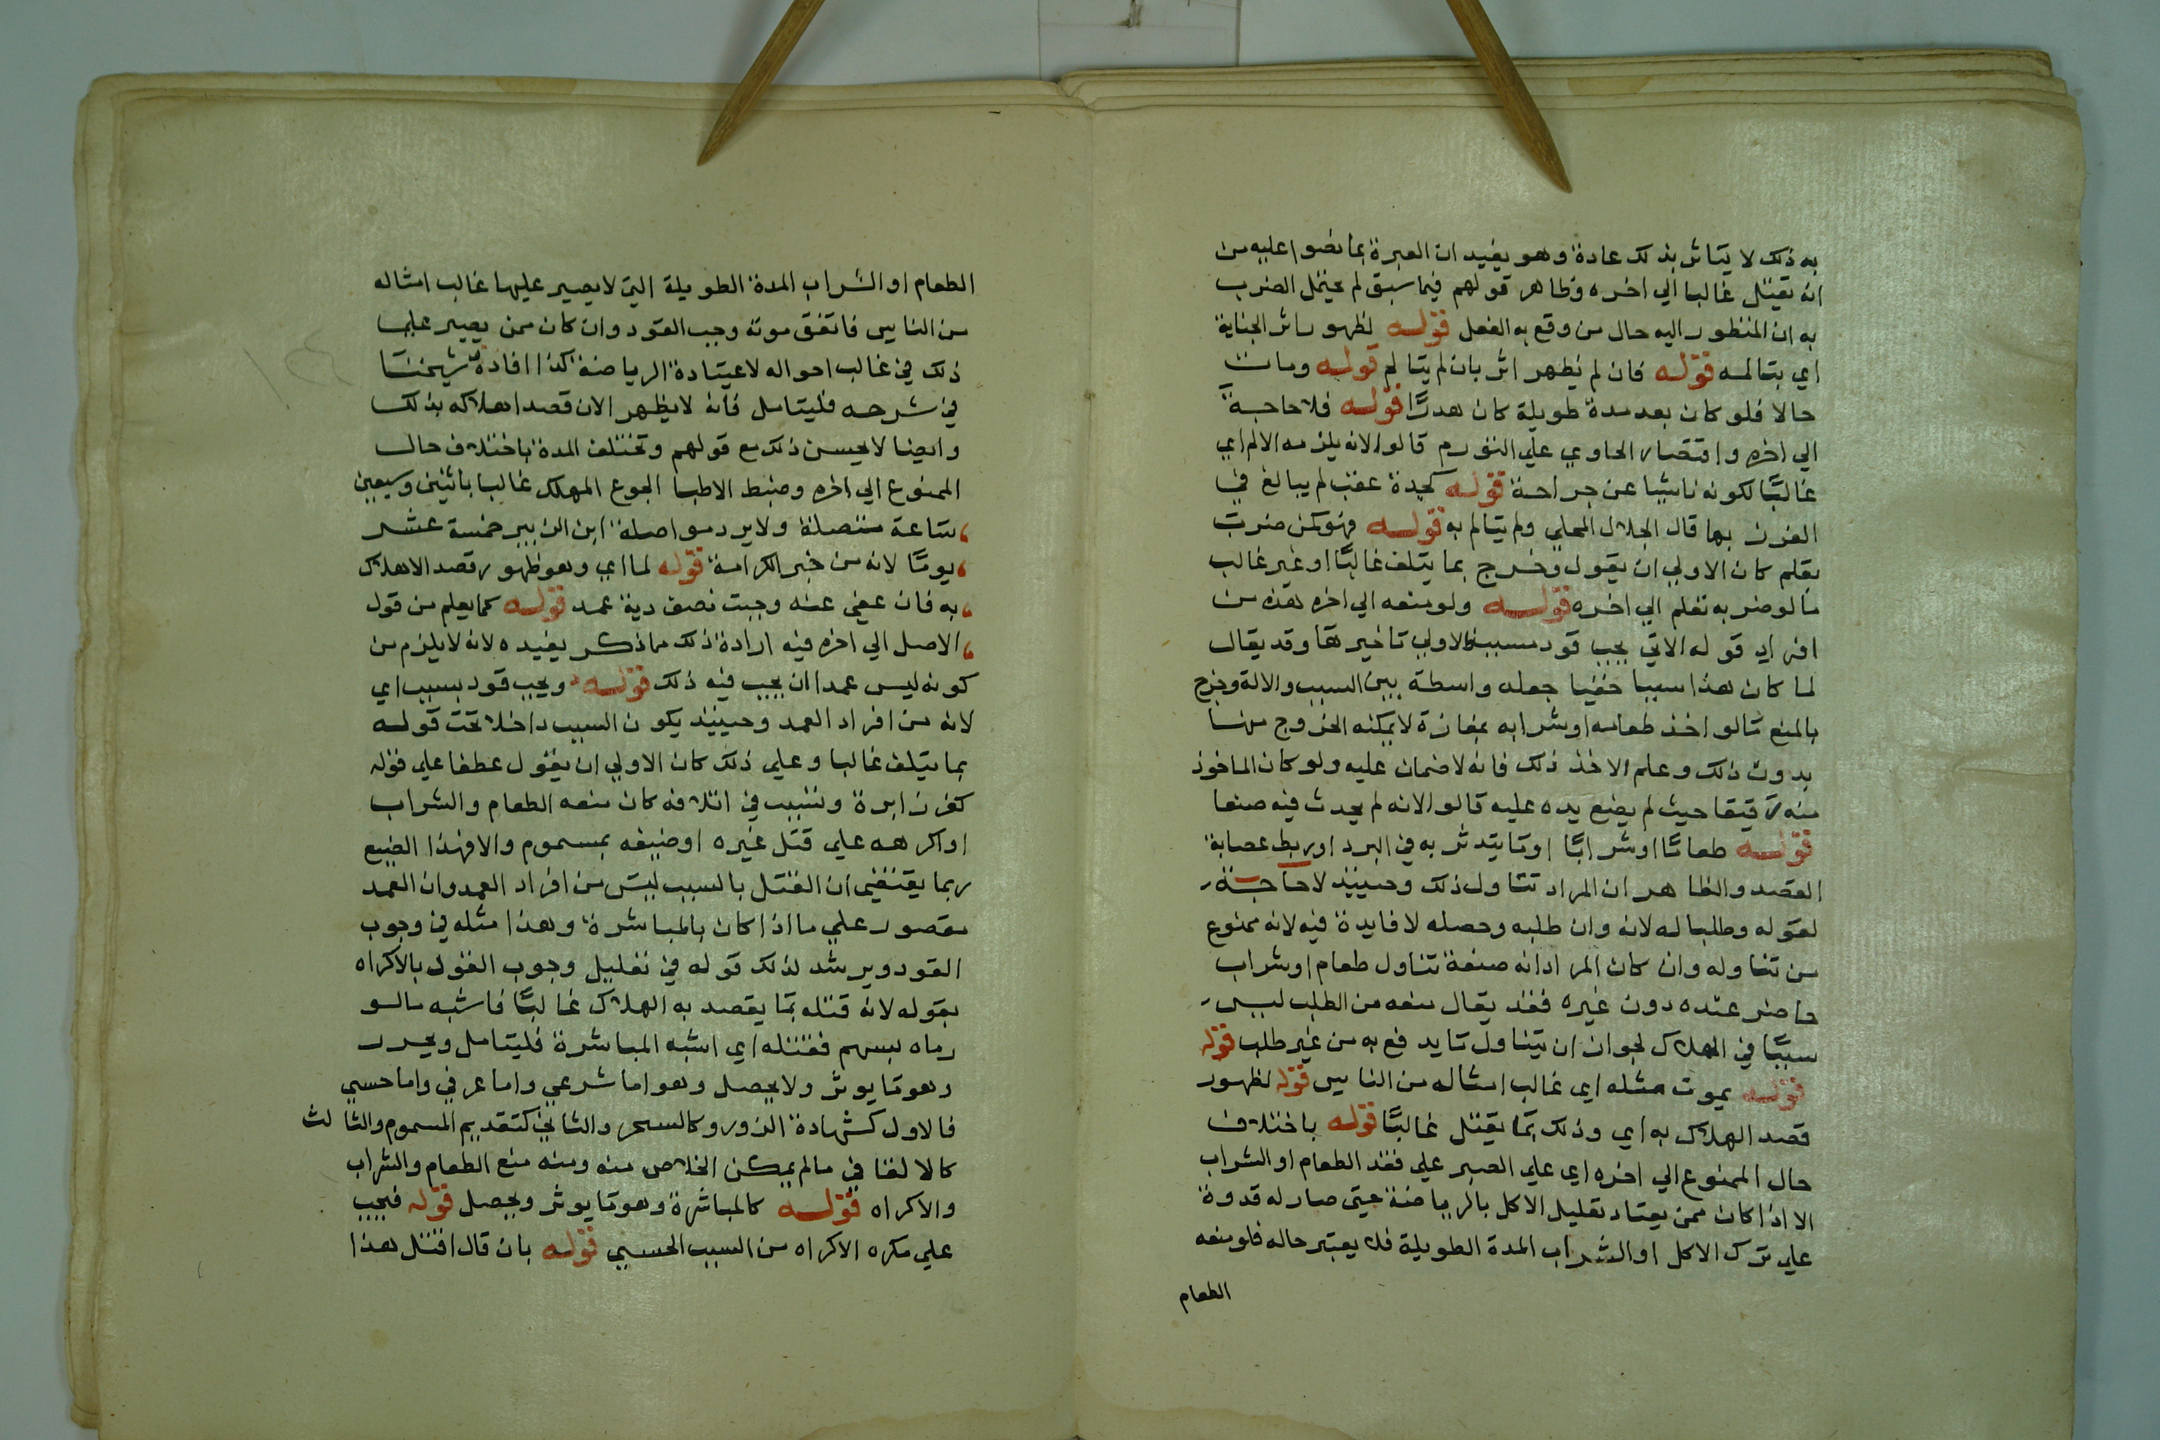 به ذلك لا يتاثر بذلك عادة وهو يفيد ان العبرة بما نصوا عليه من
انه يقتل غالبا الي اخره وظاهر قولهم فيما سبق لم يحتمل الضرب
به ان المنظور اليه حال من وقع به الفعل قوله لظهور اثر الجناية
اي بتالمه قوله فان لم يظهر اثر بان لم يتالم قوله ومات
حالا فلو كان بعد مدة طويلة كان هدرًا قوله فلا حاجة
الي اخره واقتصار الحاوي علي التورم قالوا لانه يلزمه الالم اي
غالبًا لكونه ناشيا عن جراحة قوله كجلدة عقب لم يبالغ في
الغرز بها قال الجلال المحلي ولم يتالم به قوله فهو كمن ضرب
بقلم كان الاولي ان يقول وخرج بما يتلف غالبًا او غير غالب
مالو ضربه بقلم الي اخره قوله ولو منعه الي اخره هذه من
افراد قوله الاتي يجب قود بسبب فالاولي تاخيرها وقد يقال
لما كان هذا سببا خفيا جعله واسطة بين السبب والالة وخرج
بالمنع مالو اخذ طعامه او شرابه بمفازة لا يمكنه الخروج منها
بدون ذلك وعلم الاخذ ذلك فانه لا ضمان عليه ولو كان الماخوذ
منه رقيقا حيث لم يضع يده عليه قالوا لانه لم يحدث فيه صنعا
قوله طعامًا او شرابًا او ما يتدثر به في البرد او ربط عصابة
الفصد والظاهر ان المراد تناول ذلك وحينيذ لا حاجة
لقوله وطلبا له لانه وان طلبه وحصله لا فايدة فيه لانه ممنوع
من تناوله وان كان المراد انه صنعة تناول طعام او شراب
حاضر عنده دون غيره فقد يقال منعه من الطلب ليس
سببًا في الهلاك لجواز ان يتناول ما يدفع به من غير طلب قوله
قوله يموت مثله اي غالب امثاله من الناس قوله لظهور
قصد الهلاك به اي وذلك مما يقتل غالبًا قوله باختلاف
حال الممنوع الي اخره اي علي الصبر علي فقد الطعام او الشراب
الا اذا كان ممن يعتاد تقليل الاكل بالرياضة حتي صار له قدوة
علي ترك الاكل او الشراب المدة الطويلة فلا يعتبر حاله فلو منعه
الطعام
الطعام او الشراب المدة الطويلة التي لا يصبر عليها غالب امثاله
من الناس فاتفق موته وجب القود وان كان ممن يصبر علي
ذلك في غالب احواله لاعتيادة الرياضة كذا افادة شيخنا
في شرحه فليتامل فانه لا يظهر الان قصد اهلاكه بذلك
وايضا لا يحسن ذلك مع قولهم وتختلف المدة باختلاف حال
الممنوع الي اخره وضبط الاطبا الجوع المهلك غالبا باثنين وسبعين
ساعة متصلة ولا يرد مواصلة ابن الزبير خمسة عشر
يومًا لانه من خبر الكرامة قوله لما اي وهو ظهور قصد الاهلاك
به فان عفي عنه وجبت نصف دية عمد قوله كما يعلم من قول
الاصل الي اخره فيه ارادة ذلك مما ذكر يفيده لانه لا يلزم من
كونه ليس عمدا ان يجب فيه ذلك قوله ويجب قود بسبب اي
لانه من افراد العمد وحينيذ يكون السبب داخلا تحت قوله
بما يتلف غالبا وعلي ذلك كان الاولي ان يقول عطفا علي قوله
كغرز ابرة وتسبب في اتلافه كان منعه الطعام والشراب
او اكرهه علي قتل غيره او ضيفه بمسموم والا فهذا الصنيع
ربما يقتضي ان القتل بالسبب ليس من افراد العمد وان العمد
مقصور علي ما اذا كان بالمباشرة وهذا مثله في وجوب
القود ويرشد لذلك قوله في تعليل وجوب القود بالاكراه
بقوله لانه قتله بما يقصد به الهلاك غالبًا فاشبه مالو
رماه بسهم فقتله اي اشبه المباشرة فليتامل ويحرر
وهو ما يوثر ولا يحصل وهو اما شرعي واما عرفي واما حسي
فالاول كشهادة الزور وكالسحر والثاني كتقديم المسموم والثالث
كالالقا في ما لم يمكن الخلاص منه ومنه منع الطعام والشراب
والاكراه قوله كالمباشرة وهو ما يوثر ويحصل قوله فيجب
علي مكره الاكراه من السبب الحسي قوله بان قال اقتل هذا